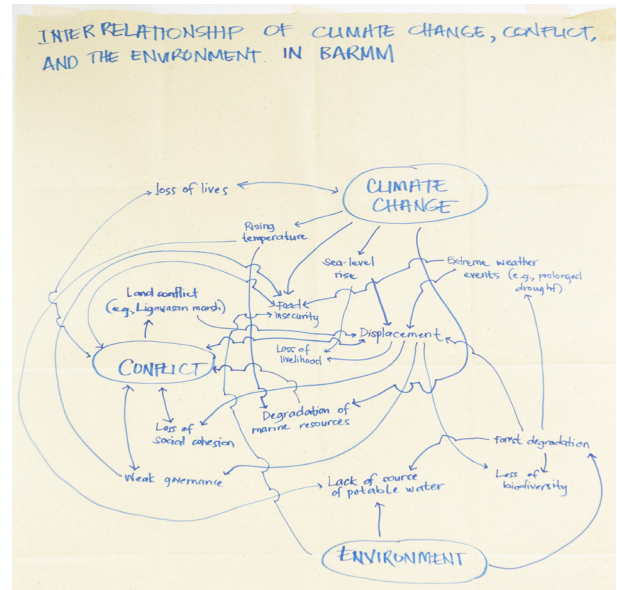 INTERRELATIONSHIP OF CLIMATE CHANGE, CONFLICT,
AND THE ENVIRONMENT IN BARMM
loss of lives
CLIMATE
CHANGE
Rising
temperature
Sea-level
rise
Extreme weather
events (e.g., prolonged
drought)
Land conflict
(e.g., Ligawasan marsh)
Food
insecurity
Displacement
Loss of
livelihood
CONFLICT
Degradation of
marine resources
Loss of
social cohesion
Forest degradation
Weak governance
Lack of source
of potable water
Loss of
biodiversity
ENVIRONMENT